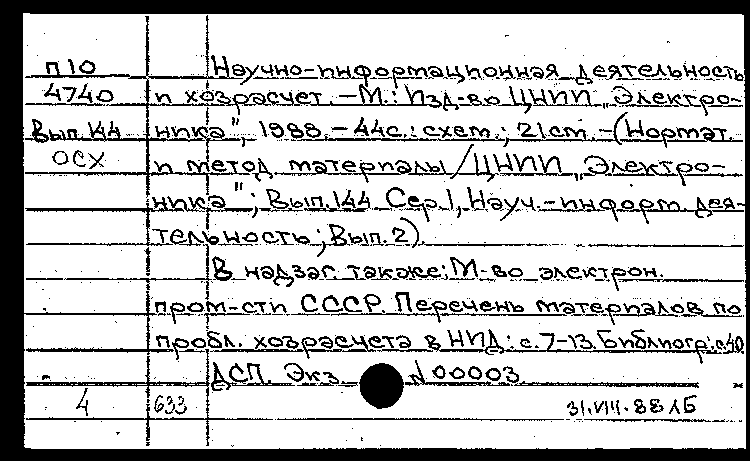 П10 Научно-информационная деятельность
4740 и хозрасчет. – М.: Изд-во ЦНИИ „Электро-
Вып. 144 ника", 1988. – 44с.: схем.; 21см. – (Нормат.
ОСХ и метод. материалы / ЦНИИ „Электро-
ника"; Вып. 144. Сер. 1, Науч.-информ. дея-
тельность; Вып. 2).
В надзаг. также: М-во электрон.
пром-сти СССР. Перечень материалов по
пробл. хозрасчета в НИД: с. 7-13. Библиогр.: с. 40
ДСП. Экз. N 00003
4 633 31.VIII.88 ЛБ